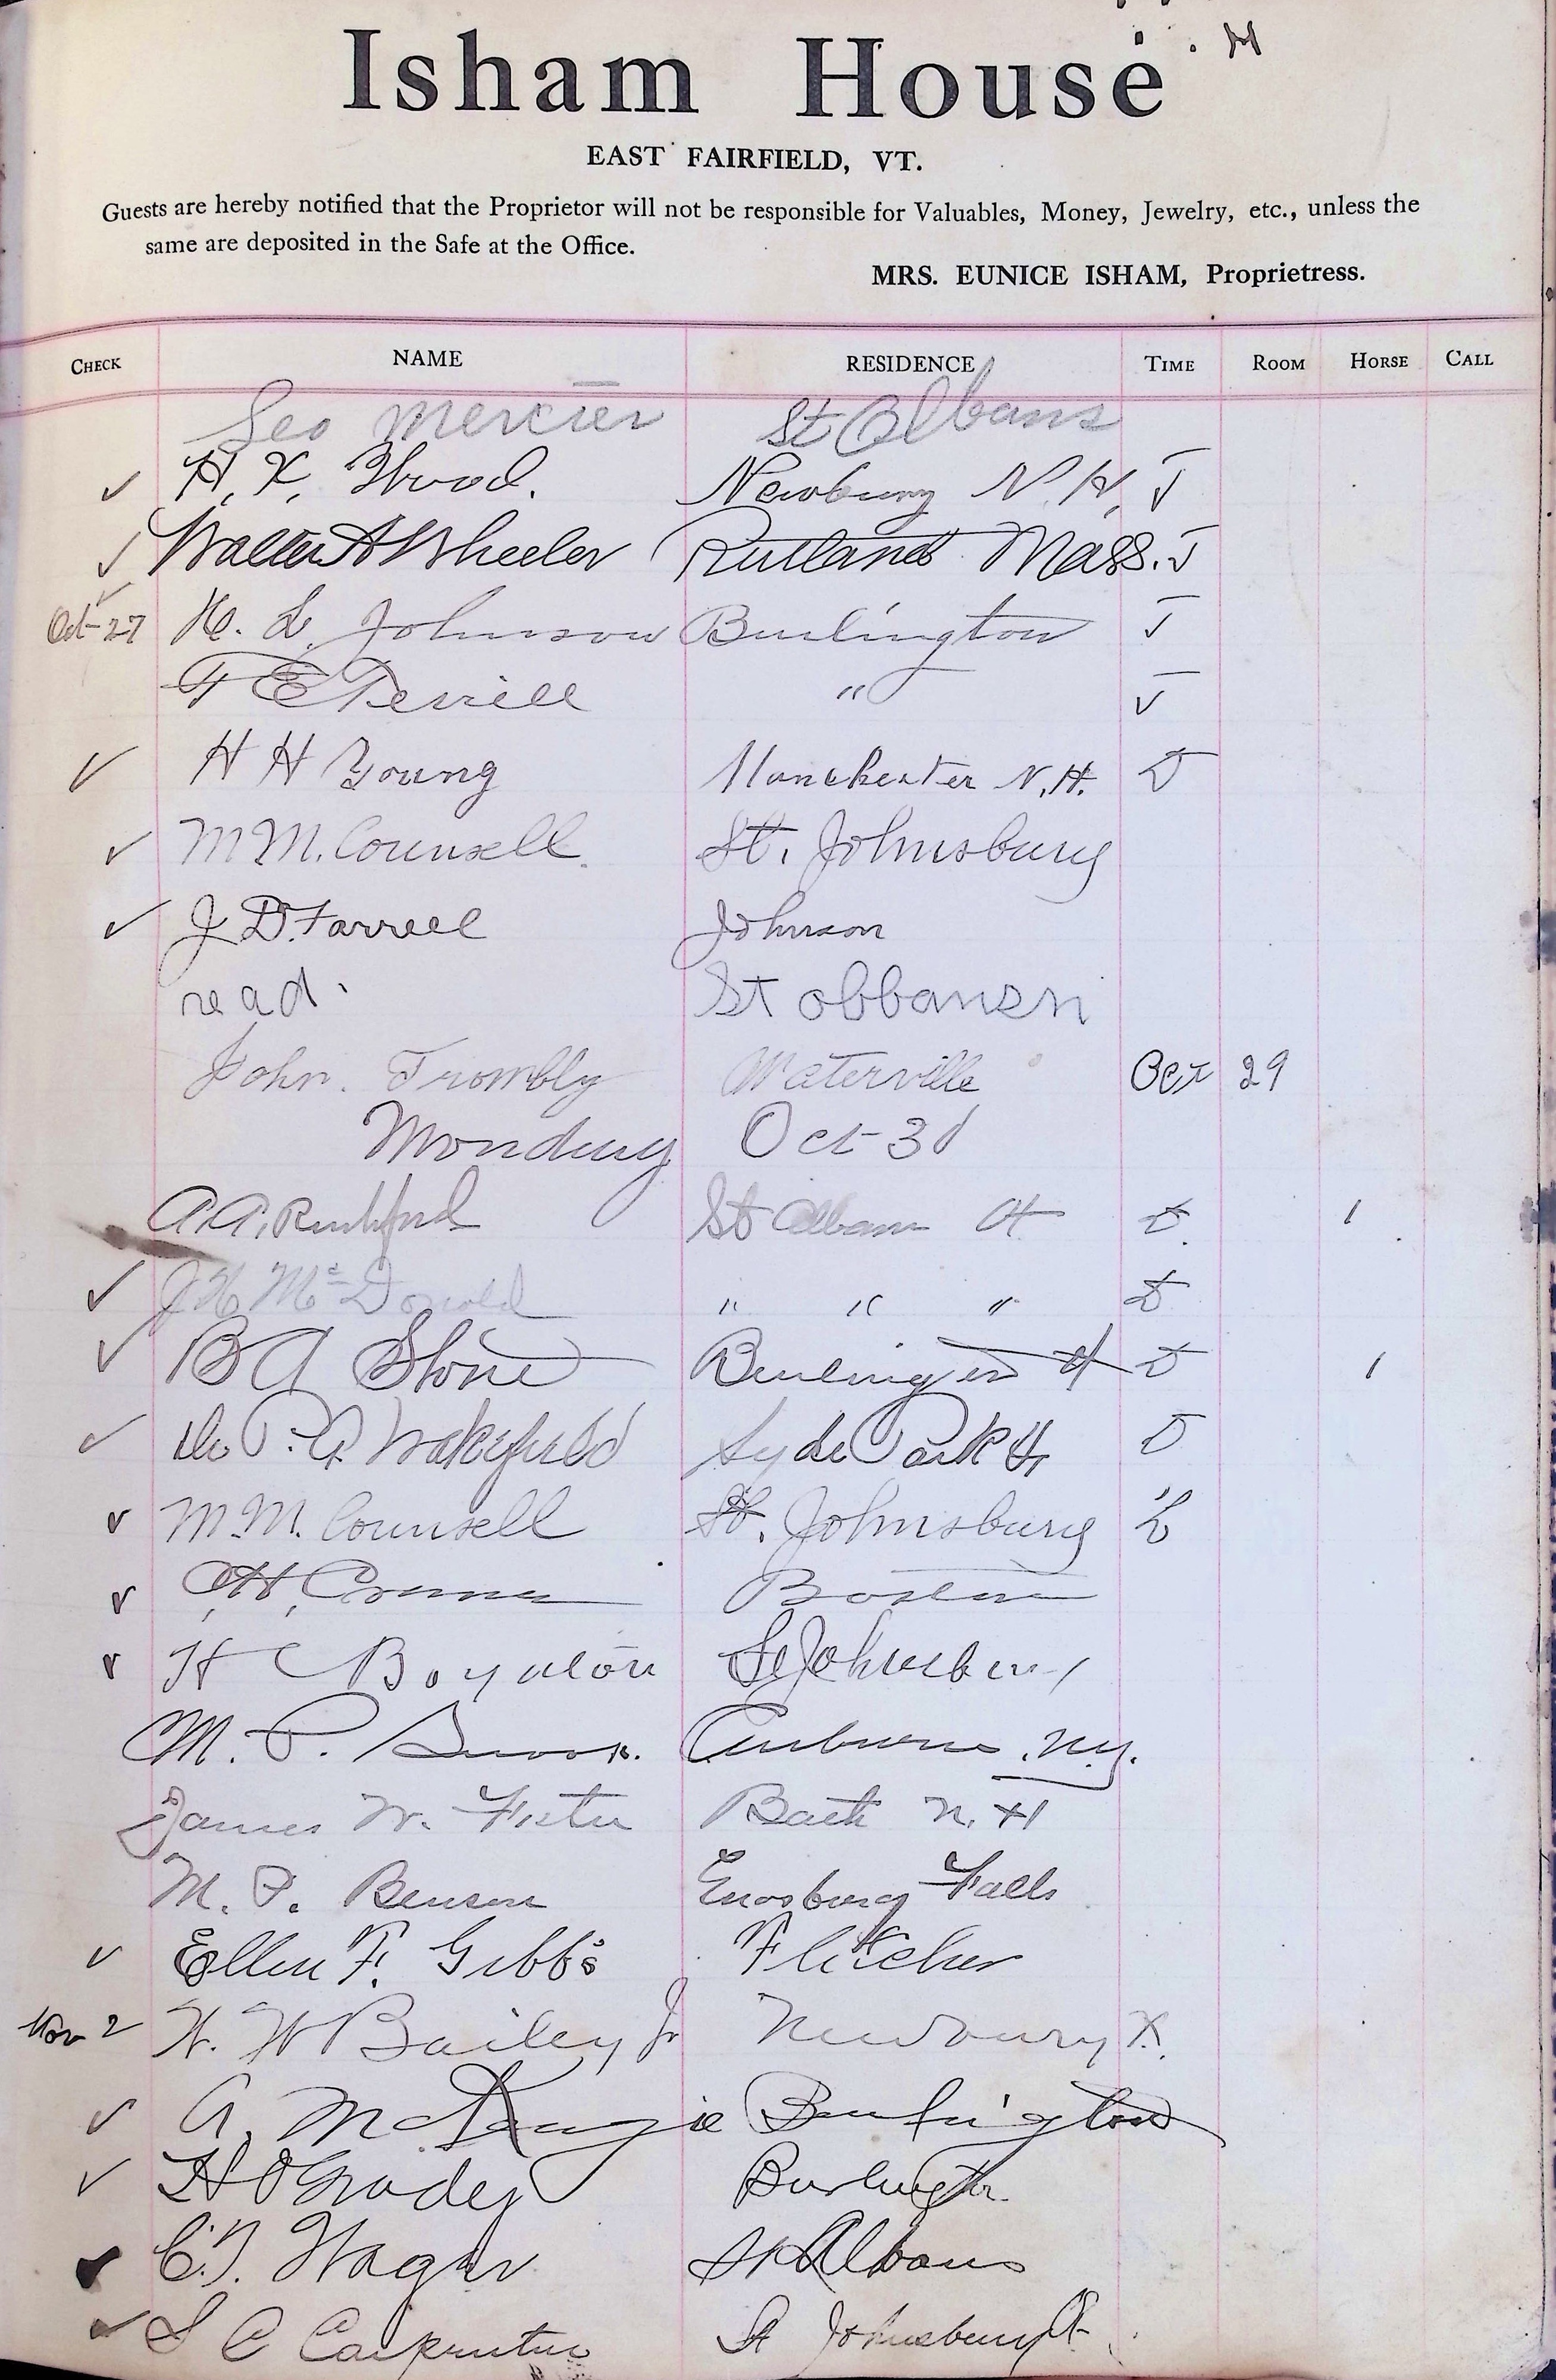 Isham House
EAST FAIRFIELD, VT.
Guests are hereby notified that the Proprietor will not be responsible for Valuables, Money, Jewelry, etc., unless the
same are deposited in the Safe at the Office.
MRS. EUNICE ISHAM, Proprietress.
CHECK NAME RESIDENCE TIME ROOM HORSE CALL
Geo Mercier St Albans
✓ H. K. Wood. Newbury N. H.
✓ Walter A Wheeler Rutland Mass.
Oct 27 H. L. Johnson Burlington
F E Terrill "
✓ H H Young Manchester N. H. D
✓ M M. Counsell St. Johnsbury
✓ J D. Farrell Johnson
read. St
John. Trombly Waterville Oct 29
Monday Oct 31
A. A. Rushford St Albans Vt D 1
✓ J H McDonald " " " D
✓ B A Stone Burlington Vt D 1
✓ Dr P. A. Wakefield Hyde Park Vt D
✓ M. M. Counsell St. Johnsbury
✓ Boston
✓ H C Boynton St Johnsbury
M. P. Auburn N.Y.
James W. Bath N. H
M. P. Benson Enosburg Falls
✓ Ellen F. Gibbs Fletcher
Nov 2 W. W Bailey Jr Newbury X.
✓ A. McKenzie Burlington
✓ H O Grady Burlington
✓ Wagar St Albans
✓ S C Carpenter St Johnsbury Vt